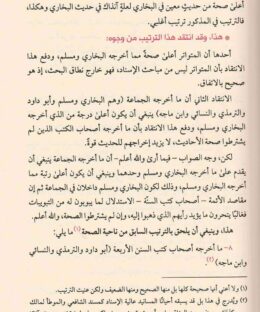 أعلىٰ صحة من حديثٍ معين في البخاري لعلةٍ آنذاك في حديث البخاري وهكذا،
فالترتيب في المذكور ترتيب أغلبي.
* هذا، وقد انتقد هذا الترتيب من وجوه:
أحدها أن المتواتر أعلىٰ صحةً مما أخرجه البخاري ومسلم، ودفع هذا
الانتقاد بأن المتواتر ليس من مباحث الإسناد، فهو خارج نطاق البحث، إذ هو
صحيح بالاتفاق.
الانتقاد الثاني أن ما أخرجه الجماعة (وهم البخاري ومسلم وأبو داود
والترمذي والنسائي وابن ماجه) ينبغي أن يكون أعلىٰ درجة من الذي أخرجه
البخاري ومسلم وحدهما، ودفع هذا بأن ما أخرجه أصحاب الكتب الذين لم
يشترطوا صحة الأحاديث، لا يزيد إخراجهم للحديث قوة.
لكن، وجه الصواب - فيما أرىٰ والله أعلم - أن ما أخرجه الجماعة ينبغي أن
يقدم علىٰ ما أخرجه البخاري ومسلم وحدهما وينبغي أن يكون أعلىٰ رتبة مما
أخرجه البخاري ومسلم، وذلك لكون البخاري ومسلم داخلان في الجماعة ثم إن
مقاصد الأئمة - أصحاب كتب السنّة - الاستدلال لما يبوبون له من التبويبات
فغالبًا يتحرون ما يؤيد رأيهم الذي ذهبوا إليه، وإن لم يشترطوا الصحة، والله أعلم.
هذا، وينبغي أن يلحق بالترتيب السابق من ناحية الصحة (١) ما يلي:
٨- ما أخرجه أصحاب كتب السنن الأربعة (أبو داود والترمذي والنسائي
وابن ماجه) (٢).
(١) ولا أعني أنها صحيحة كلها بل منها الصحيح ومنها الضعيف ولكن حيث الترتيب.
(٢) ويُدرج في هذا بل قد يسبقه أحيانًا المسانيد عالية الإسناد كمسند الشافعي والموطأ لمالك